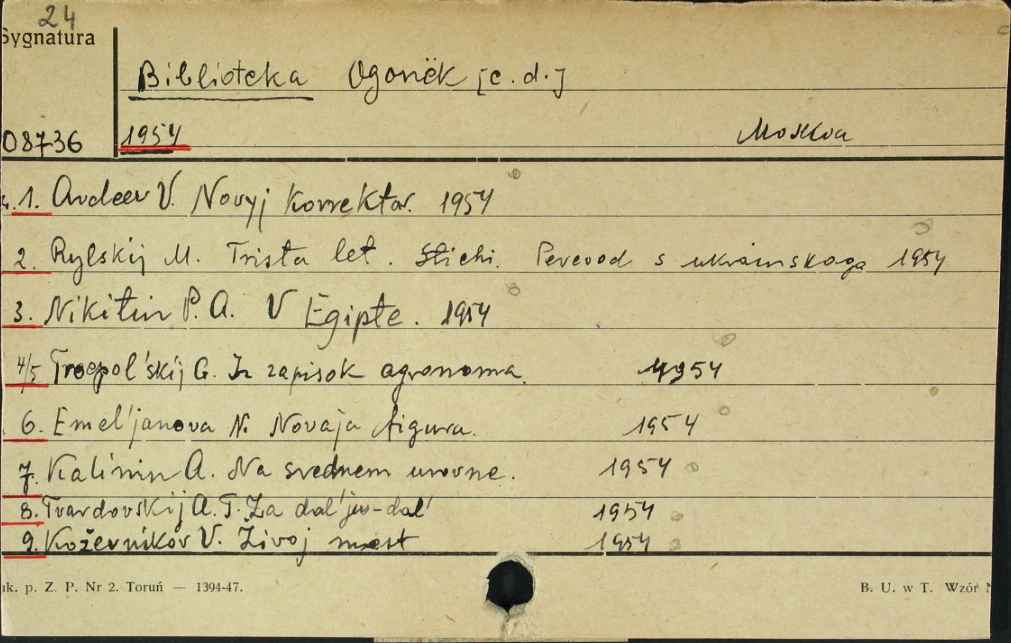 24
Sygnatura
Biblioteka Ogonëk [c.d.]
08736 1954 Moskva
1. Avdeev V. Novyj korrektor. 1954
2. Rylskij M. Trista let. Stichi. Perevod s ukrainskogo 1954
3. Nikitin P. A. V Egipte. 1954
4/5 Troepol'skij G. Iz zapisok agronoma. 1954
6. Emel'janova N. Novaja figura. 1954
7. Kalinin A. Na srednem urovne. 1954
8. Tvardovskij A. T. Za dal'ju-dal' 1954
9. Koževnikov V. Živoj most 1954
uk. p. Z. P. Nr 2. Toruń — 1394-47. B. U. w T. Wzór